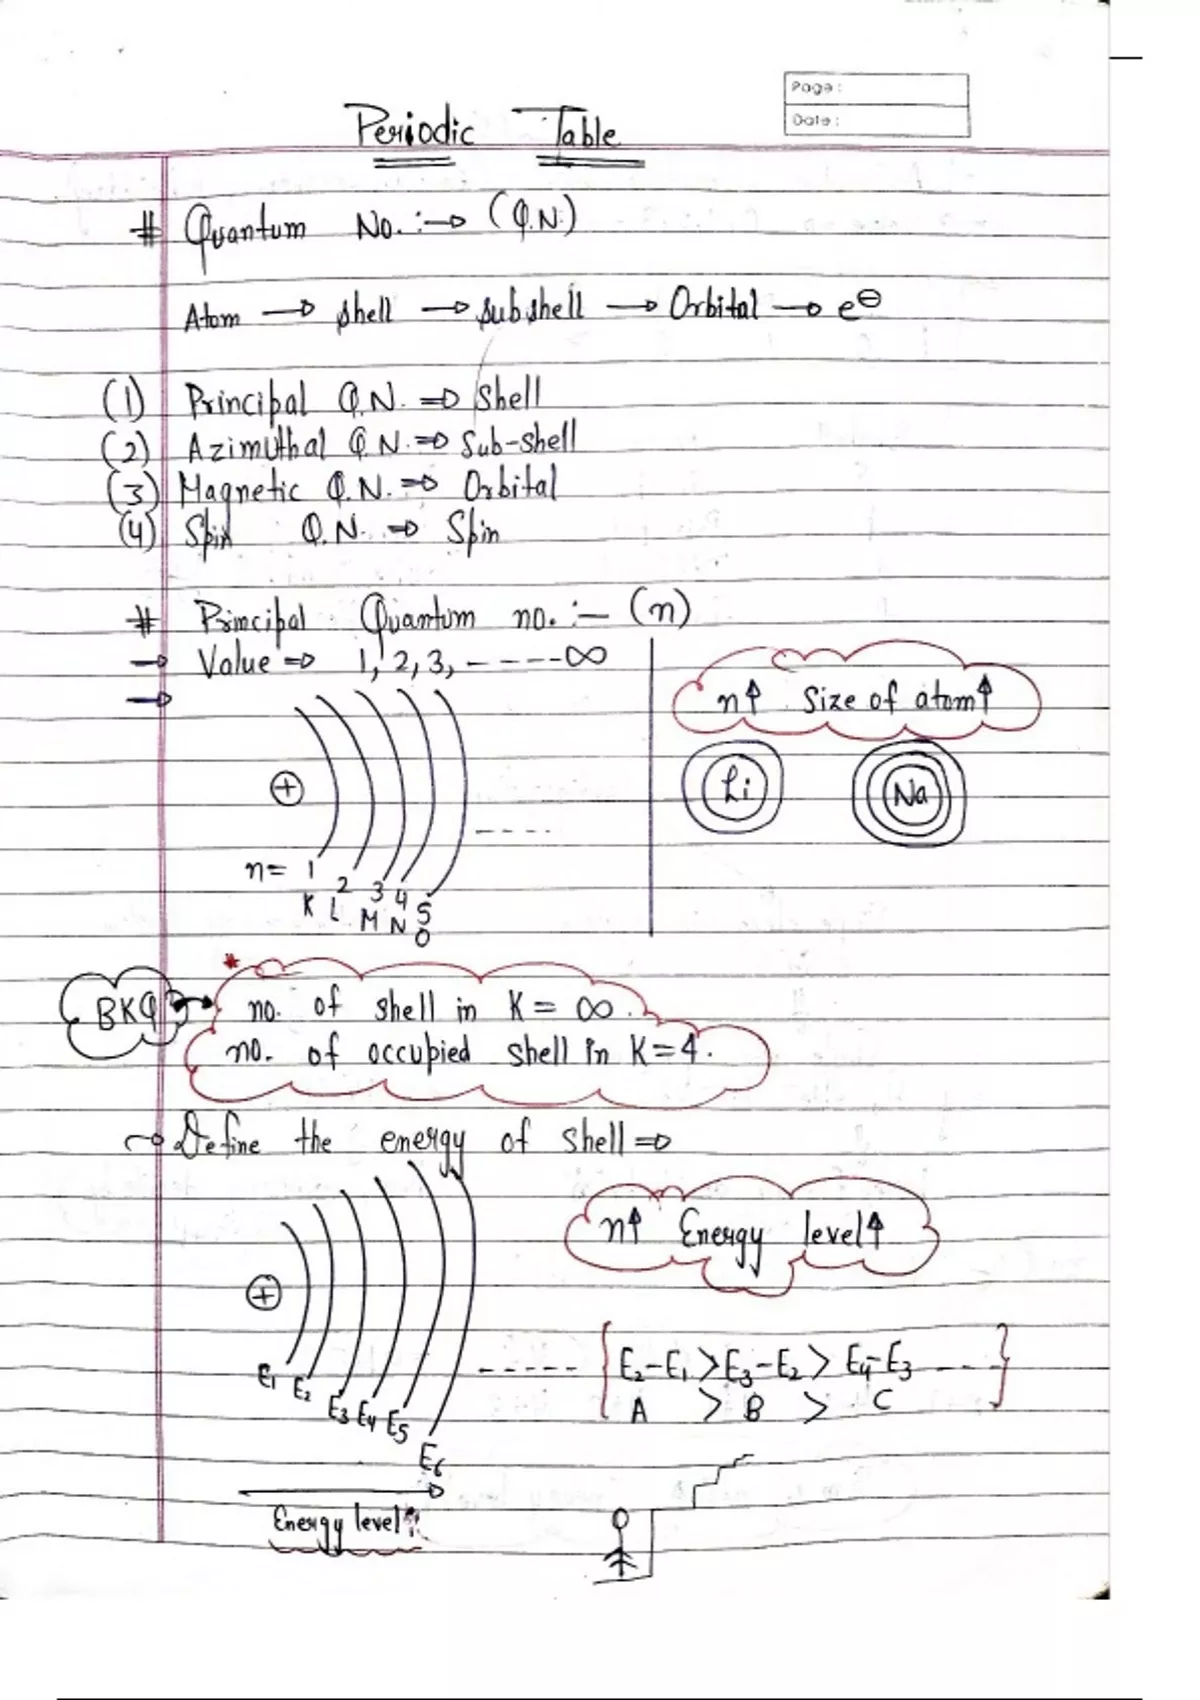 Page :
Date :
Periodic Table
# Quantum No. :→ (Q.N.)
Atom → shell → subshell → Orbital → e⊖
(1) Principal Q.N. ⇒ Shell
(2) Azimuthal Q.N. ⇒ Sub-shell
(3) Magnetic Q.N. ⇒ Orbital
(4) Spin Q.N. ⇒ Spin
# Principal Quantum no. :— (n)
→ Value ⇒ 1, 2, 3, - - - - - ∞
→
n↑ Size of atom↑
+
Li
Na
- - - -
n = 1 2 3 4 5
K L M N O
BKQ
* no. of shell in K = ∞.
no. of occupied shell in K = 4.
→ Define the energy of shell ⇒
n↑ Energy level↑
+
E₁ E₂ E₃ E₄ E₅ E₆
- - - - -
{E₂-E₁ > E₃-E₂ > E₄-E₃ - - - }
A > B > C
Energy level↑